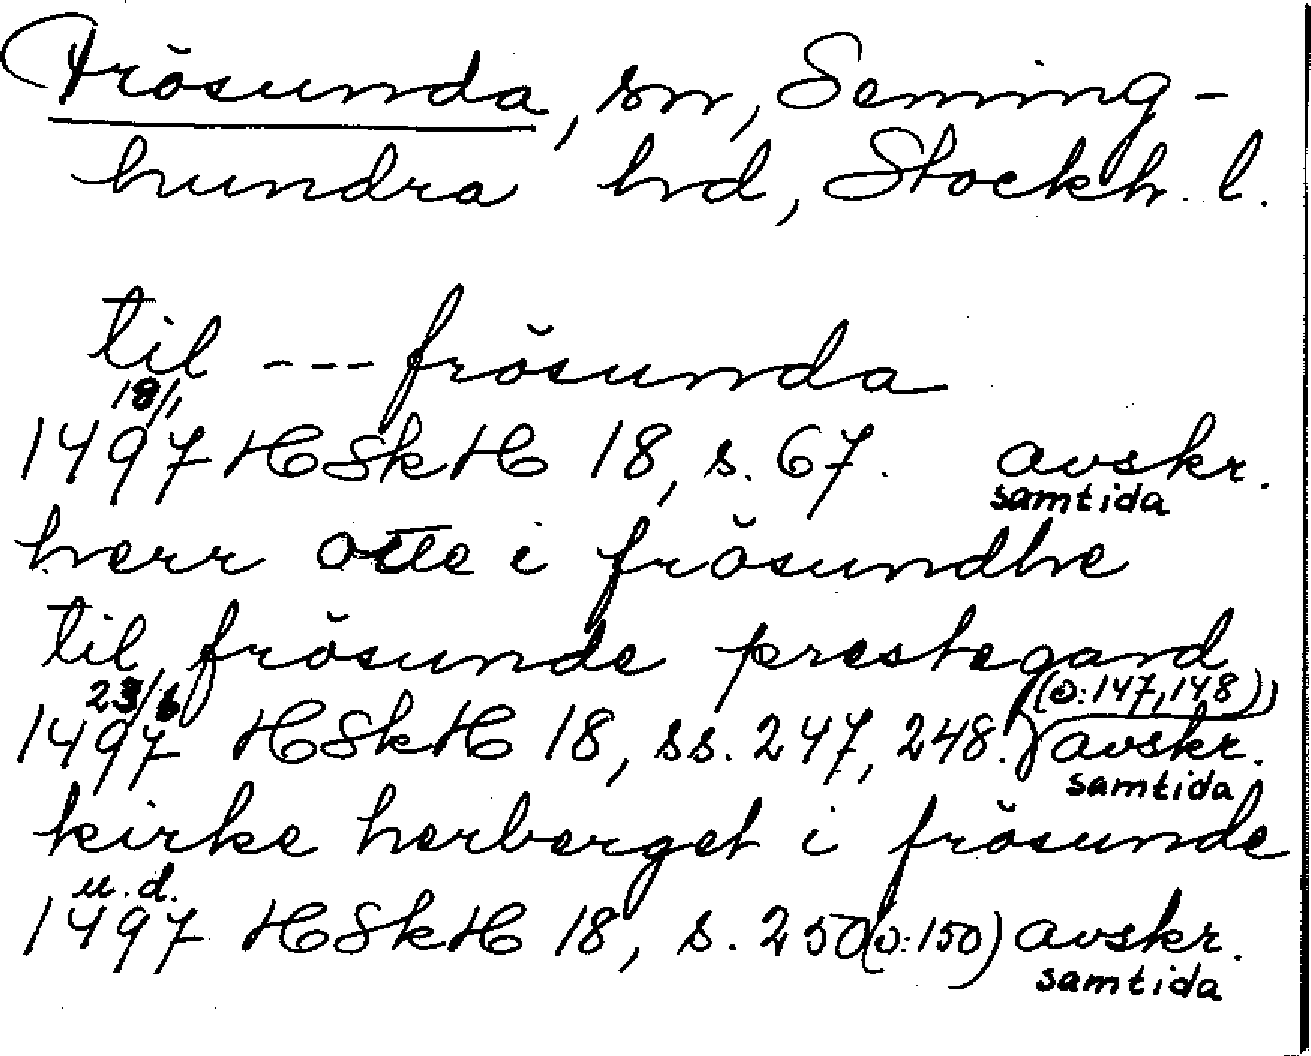 Frösunda, sn, Seming-
hundra hd, Stockh. l.
til --- frösunda
18/1
1497 HSkH 18, s. 67. avskr.
samtida
herr otte i frösundhe
til frösunde prestegard
23/6 (ɔ: 147, 148))
1497 HSkH 18, ss. 247, 248. avskr.
samtida
kirke herberget i frösunde
u.d.
1497 HSkH 18, s. 250 (ɔ: 150) avskr.
samtida